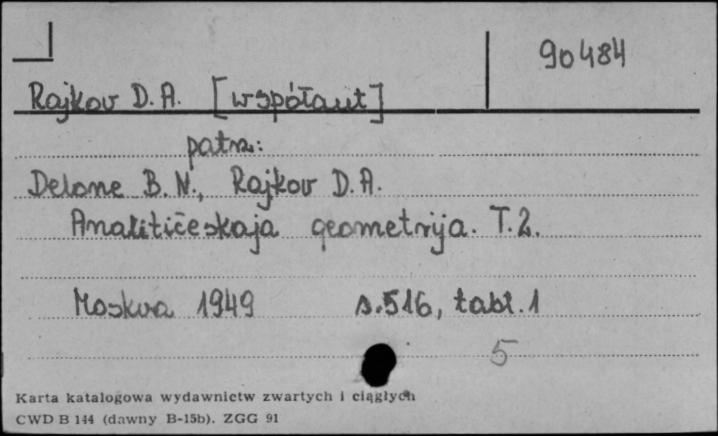 90484
Rajkov D.A. [współaut]
patrz:
Delone B.N., Rajkov D.A.
Analitičeskaja geometrija. T.2.
Moskva 1949 s.516, tabl.1
5
Karta katalogowa wydawnictw zwartych i ciągłych
CWD B 144 (dawny B-15b). ZGG 91